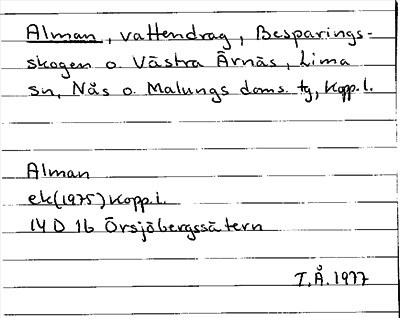 Alman, vattendrag, Besparings-
skogen o. Västra Ärnäs, Lima
sn, Nås o. Malungs doms. tg, Kopp. l.
Alman
ek (1975) Kopp. l.
14 D 1b Örsjöbergssätern
T.Å. 1977